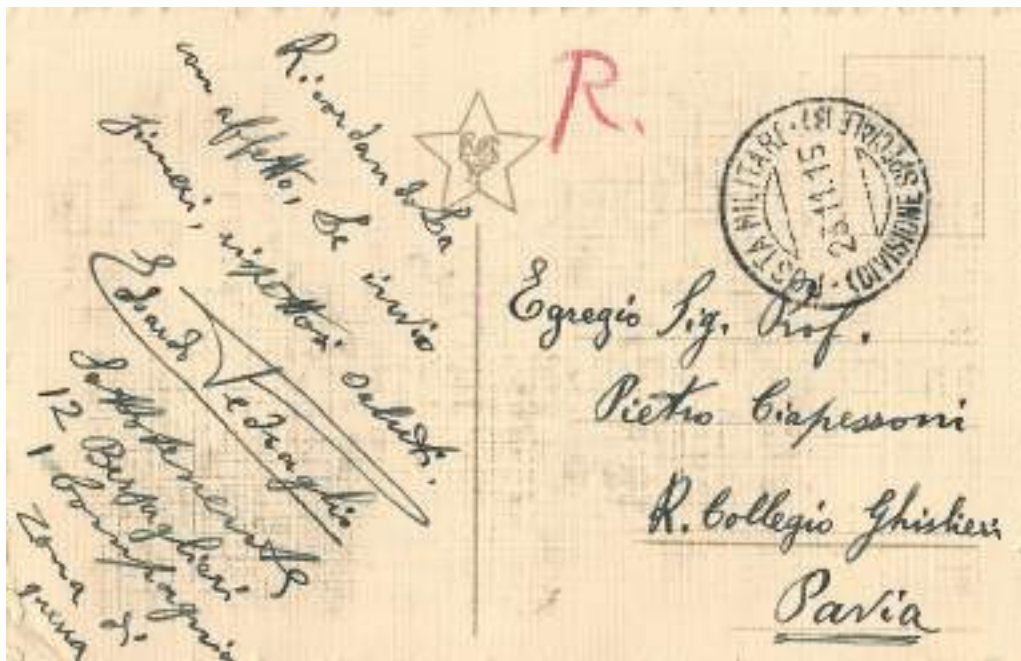 Ricordando La
con affetto, Le invio
sinceri, rispettosi saluti.
Edoardo Pedraglio
Sottotenente
12 Bersaglieri
1 Compagnia
Zona di
guerra
R.
POSTA MILITARE
(DIVISIONE SPECIALE B)
23.11.15
Egregio Sig. Prof.
Pietro Ciapessoni
R. Collegio Ghislieri
Pavia